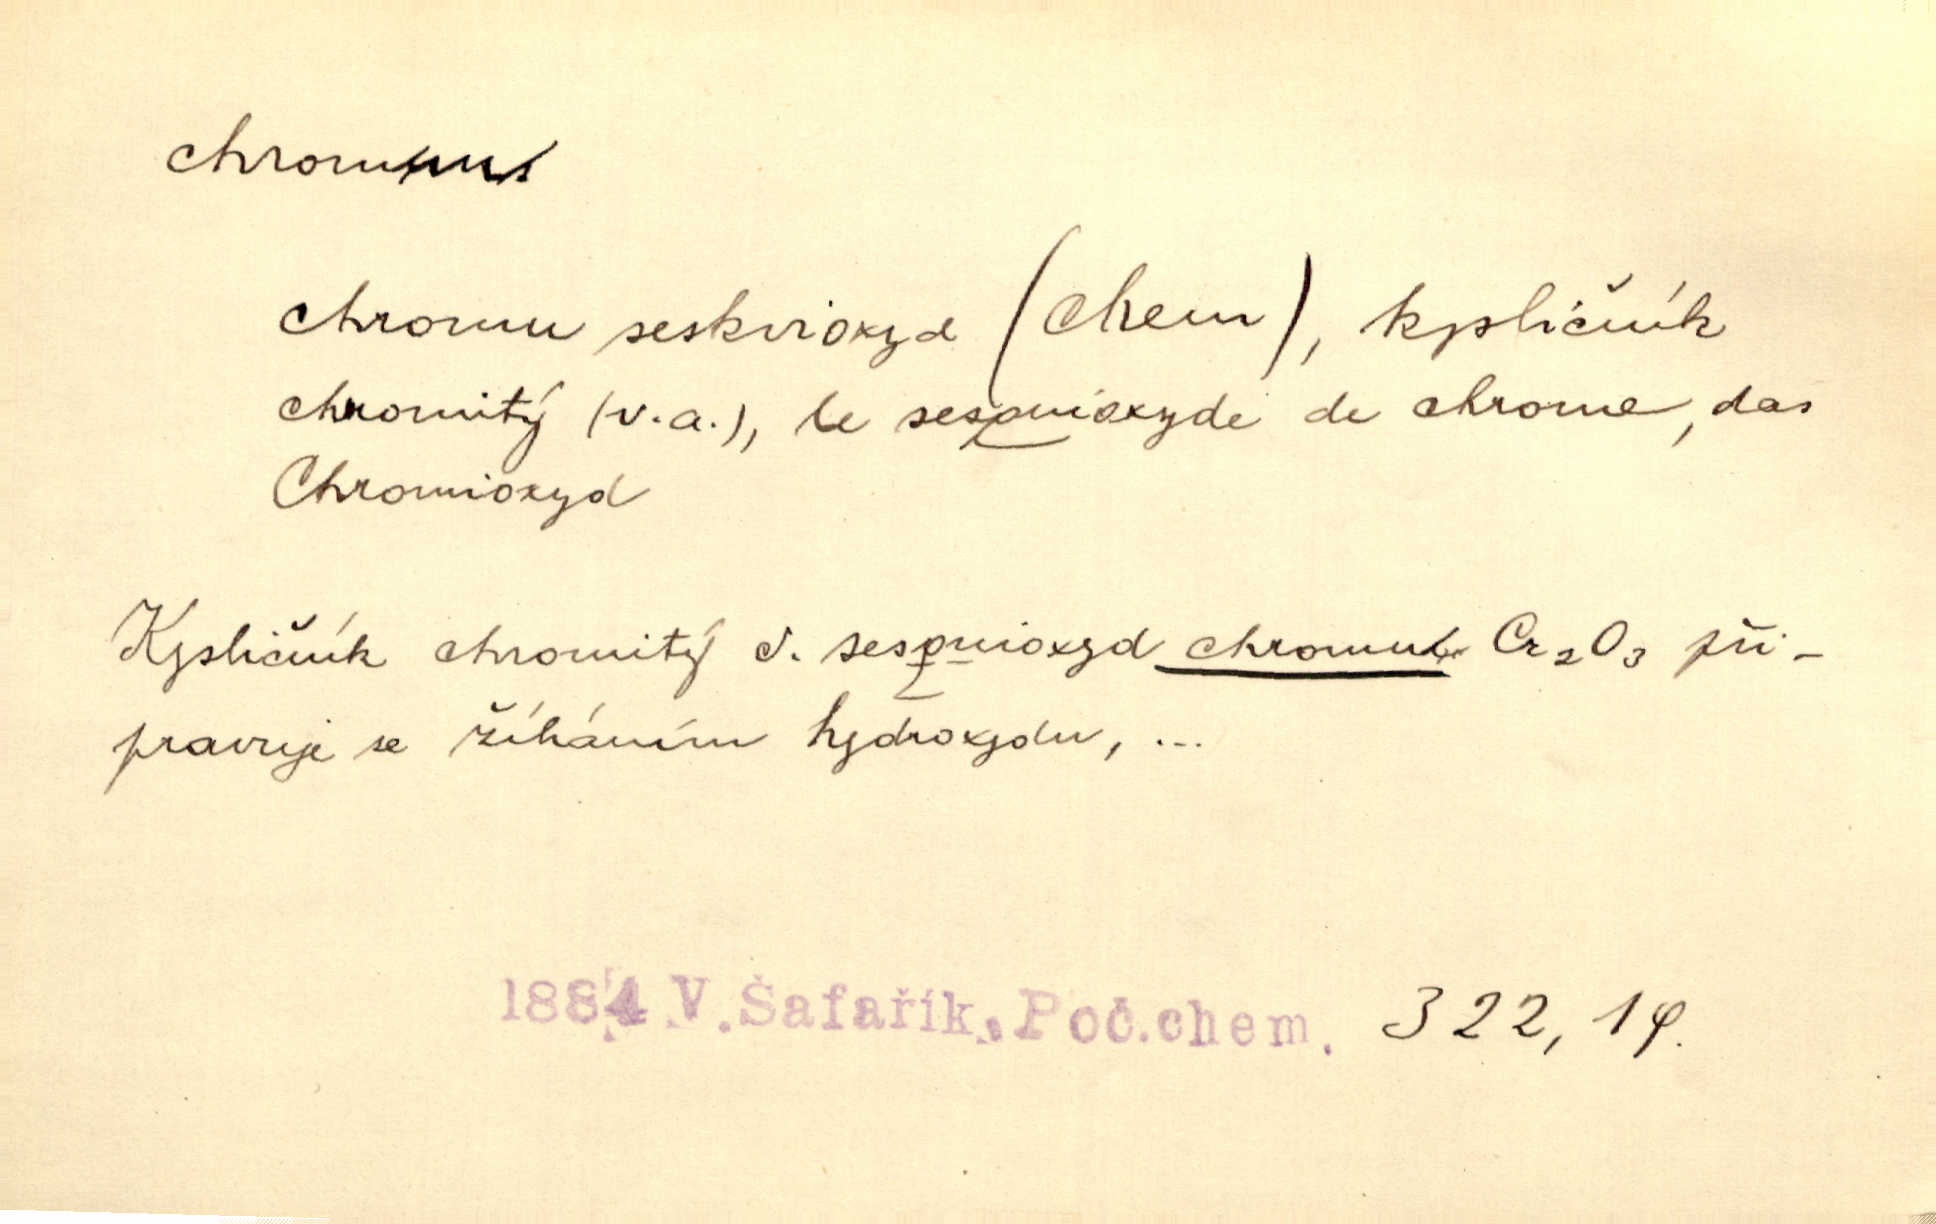 chrom
chromu seskvioxyd (chem), kysličník
chromitý (v.a.), le sesquioxyde de chrome, das
Chromioxyd
Kysličník chromitý č. sesquioxyd chromu Cr₂O₃ při-
pravuje se žíháním hydroxydu, ...
1884 V. Šafařík. Poč.chem. 322, 19.